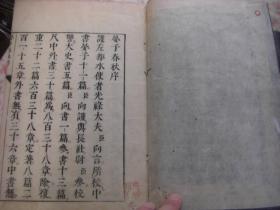 晏子春秋序
護左都水使者光祿大夫臣向言所校中
書晏子十一篇臣向謹與長社尉臣參校
讎太史書五篇臣向書一篇參書十三篇
凡中外書三十篇爲八百三十八章除複
重二十二篇六百三十八章定著八篇二
百一十五章外書無有三十六章中書無